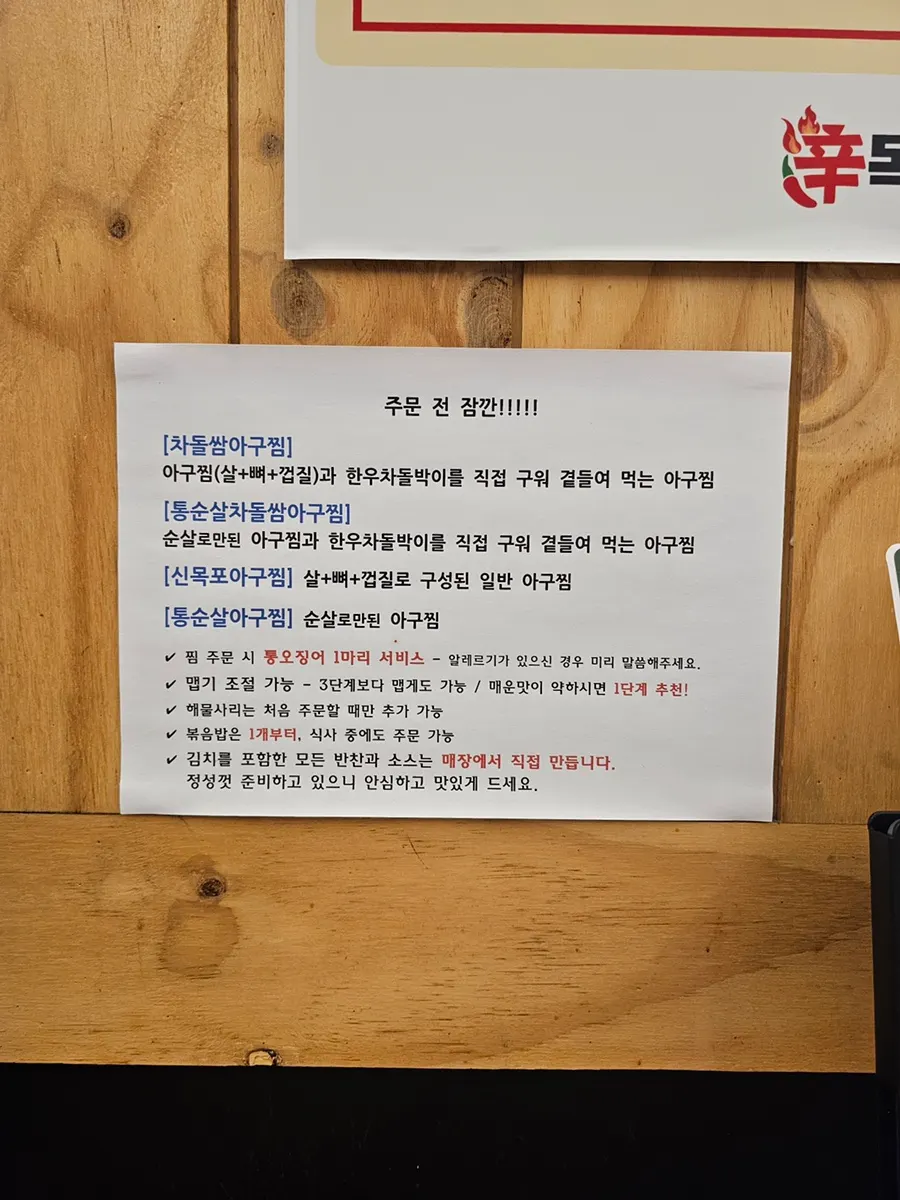 辛
주문 전 잠깐!!!!!
[차돌쌈아구찜]
아구찜(살+뼈+껍질)과 한우차돌박이를 직접 구워 곁들여 먹는 아구찜
[통순살차돌쌈아구찜]
순살로만된 아구찜과 한우차돌박이를 직접 구워 곁들여 먹는 아구찜
[신목포아구찜] 살+뼈+껍질로 구성된 일반 아구찜
[통순살아구찜] 순살로만된 아구찜
✔ 찜 주문 시 통오징어 1마리 서비스 - 알레르기가 있으신 경우 미리 말씀해주세요.
✔ 맵기 조절 가능 - 3단계보다 맵게도 가능 / 매운맛이 약하시면 1단계 추천!
✔ 해물사리는 처음 주문할 때만 추가 가능
✔ 볶음밥은 1개부터, 식사 중에도 주문 가능
✔ 김치를 포함한 모든 반찬과 소스는 매장에서 직접 만듭니다.
정성껏 준비하고 있으니 안심하고 맛있게 드세요.